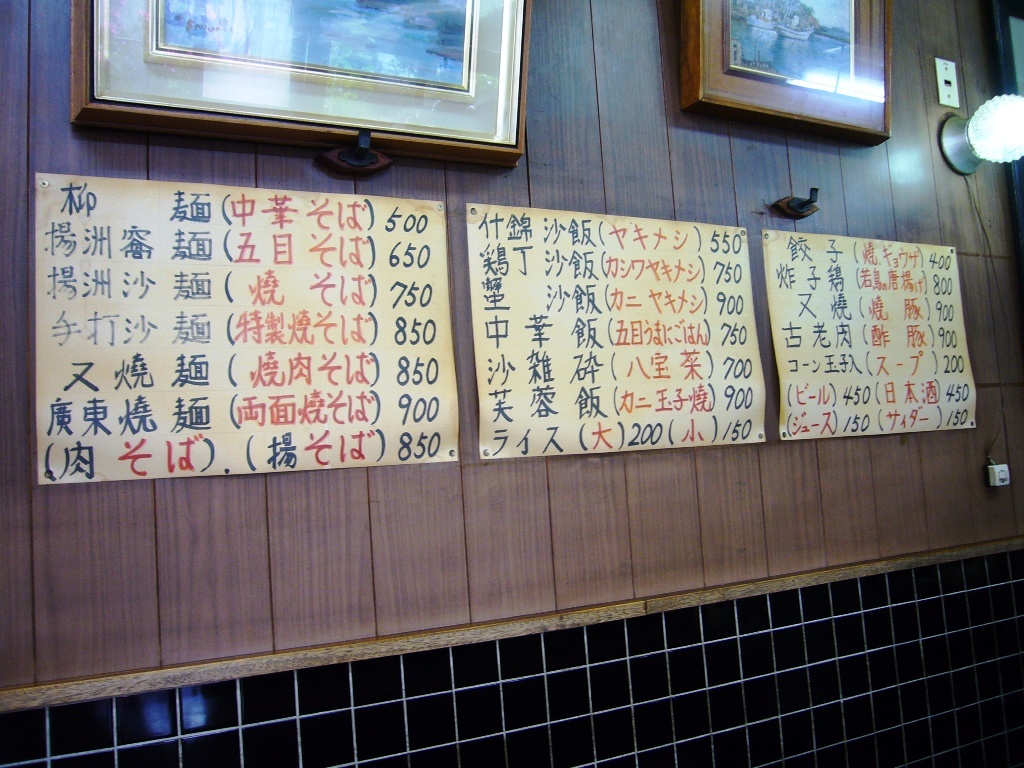 柳 麺(中華そば) 500
揚洲窩麺(五目そば) 650
揚洲沙麺(焼そば) 750
手打沙麺(特製焼そば) 850
叉燒麺(焼肉そば) 850
廣東燒麺(両面焼そば) 900
(肉そば).(揚そば) 850
什錦沙飯(ヤキメシ) 550
鶏丁沙飯(カシワヤキメシ) 750
蟹 沙飯(カニヤキメシ) 900
中華飯(五目うまにごはん) 750
沙雑砕(八宝菜) 700
芙蓉飯(カニ玉子焼) 900
ライス(大)200(小)150
餃子(焼ギョウザ) 400
炸子鶏(若鳥の唐揚げ) 800
叉燒(焼豚) 900
古老肉(酢豚) 900
コーン玉子入(スープ) 200
(ビール)450(日本酒)450
(ジュース)150(サイダー)150